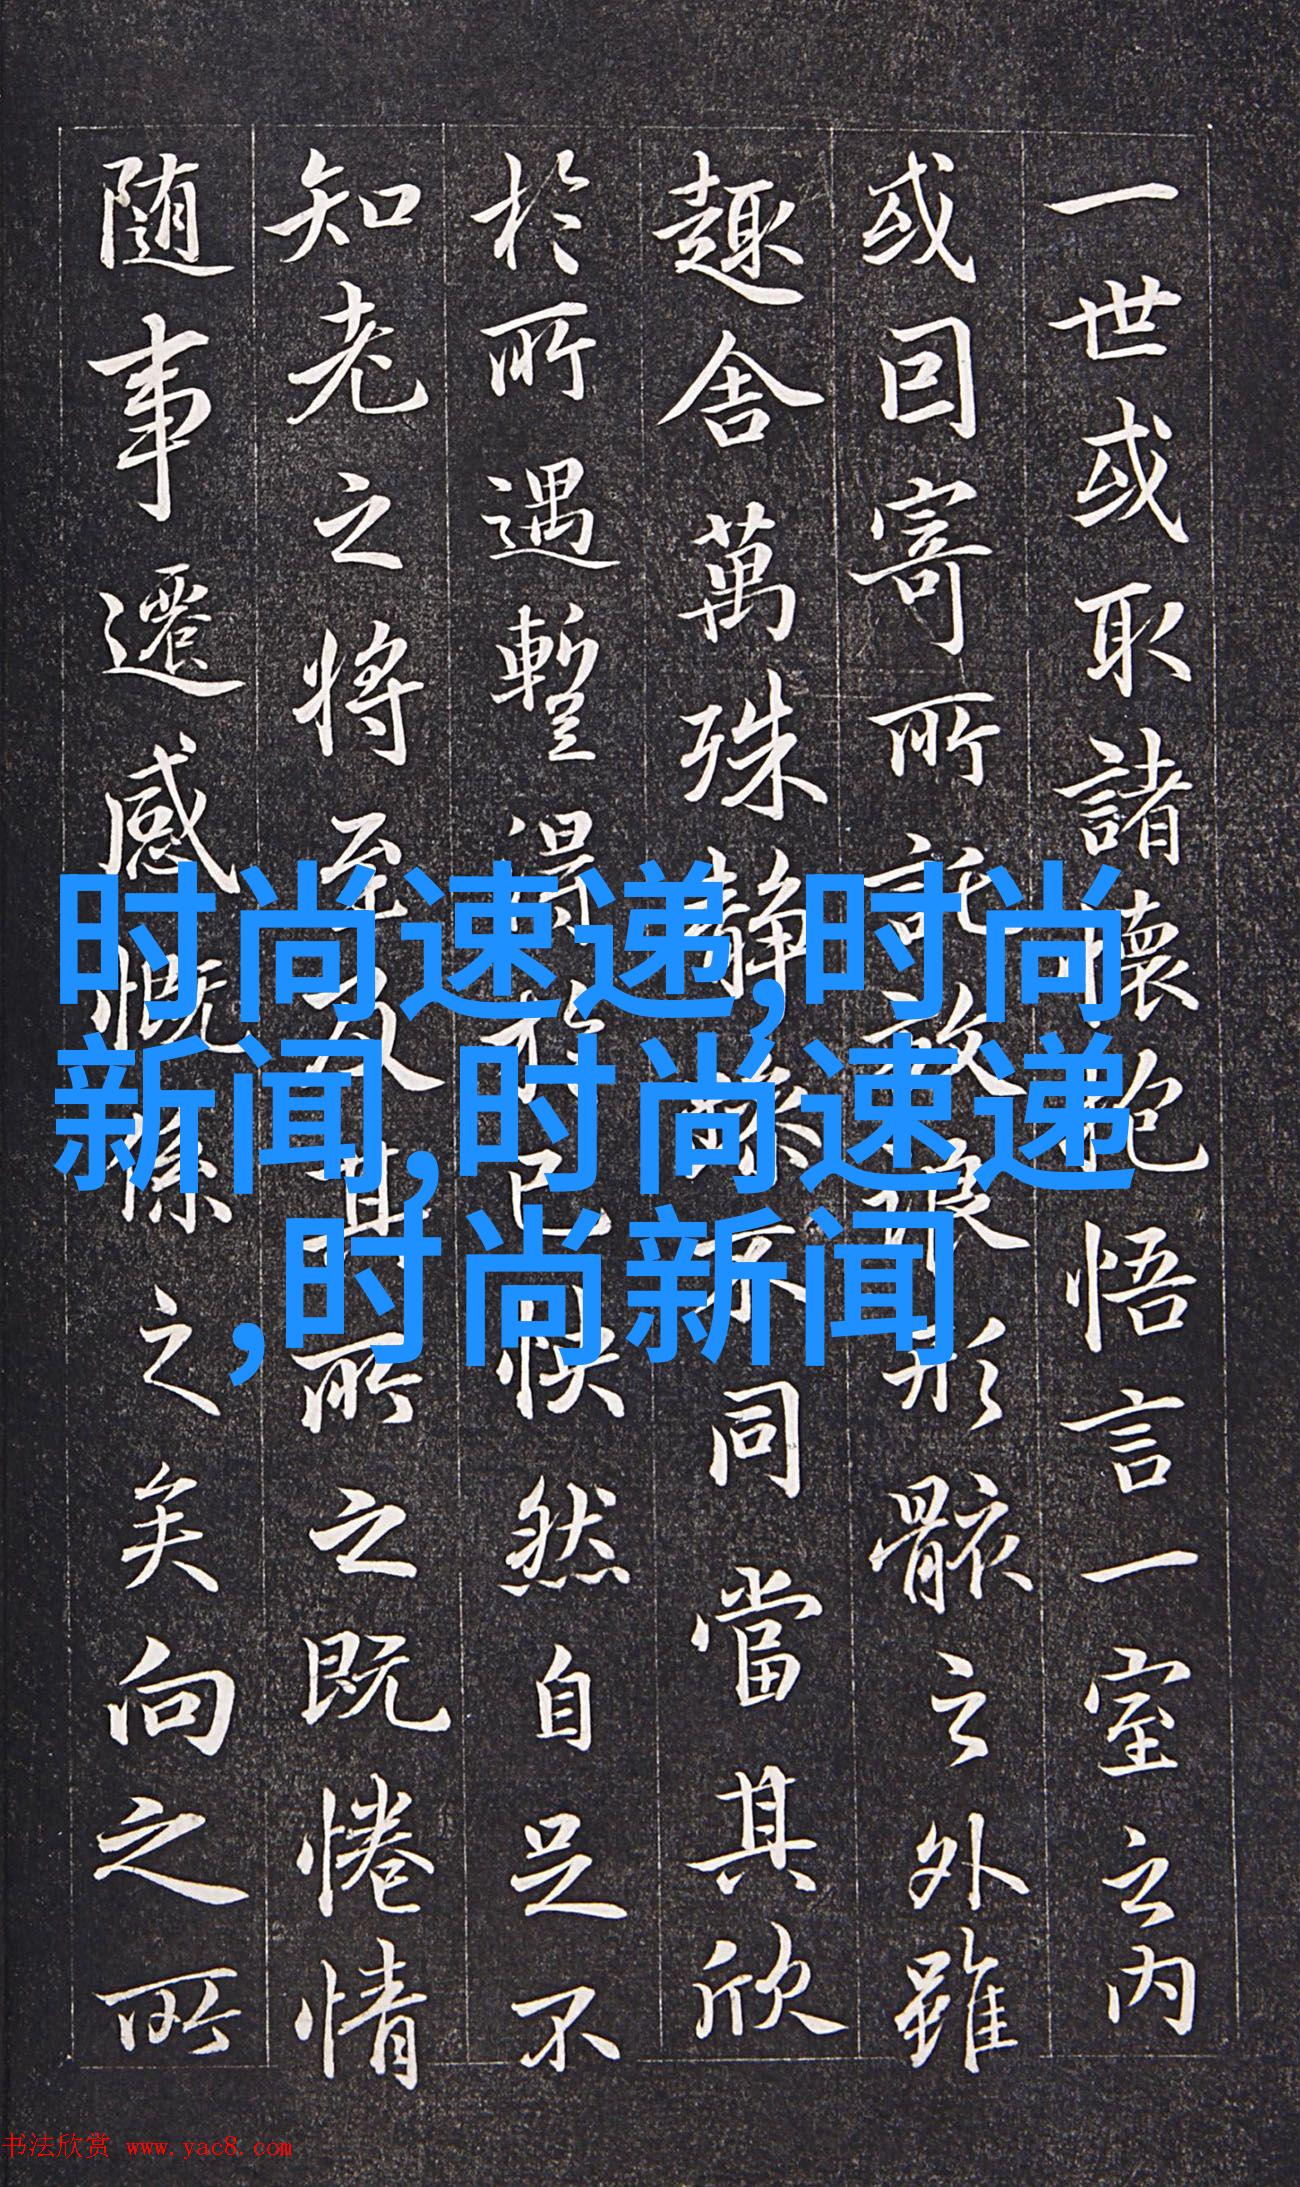 一世或取諸懷抱悟言一室之内
或因寄所託放浪形骸之外雖
趣舍萬殊静躁不同當其欣
於所遇暫得於己快然自足不
知老之將至及其所之既惓情
随事遷感慨係之矣向之所
时尚速递,时尚
新闻,时尚速递
,时尚新闻
书法欣赏 www.yac8.com